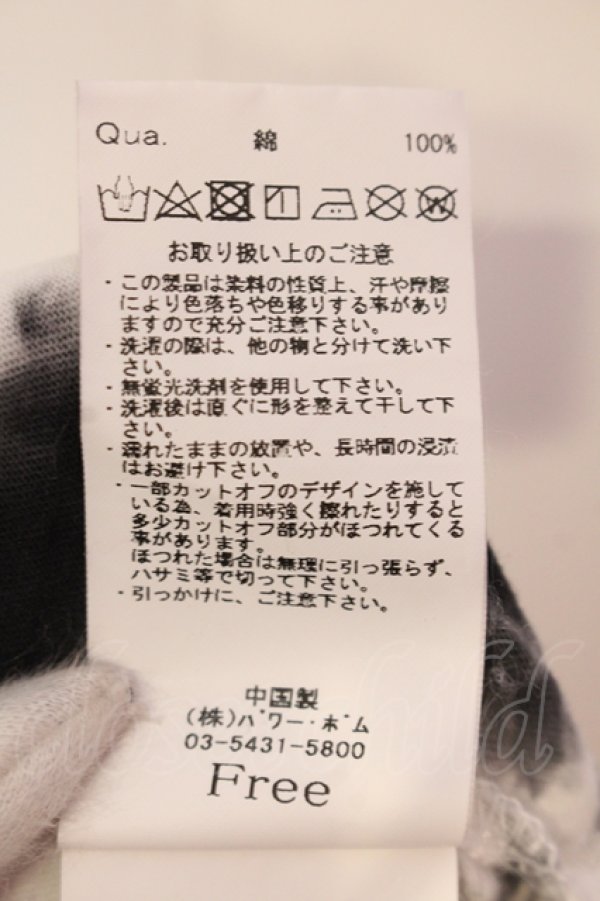 Qua. 綿 100%
お取り扱い上のご注意
・この製品は染料の性質上、汗や摩擦
により色落ちや色移りする事があり
ますので充分ご注意下さい。
・洗濯の際は、他の物と分けて洗い下
さい。
・無蛍光洗剤を使用して下さい。
・洗濯後は直ぐに形を整えて干して下
さい。
・濡れたままの放置や、長時間の浸漬
はお避け下さい。
・一部カットオフのデザインを施して
いる為、着用時強く擦れたりすると
多少カットオフ部分がほつれてくる
事があります。
ほつれた場合は無理に引っ張らず、
ハサミ等で切って下さい。
・引っかけに、ご注意下さい。
中国製
(株)パワー・ボム
03-5431-5800
Free